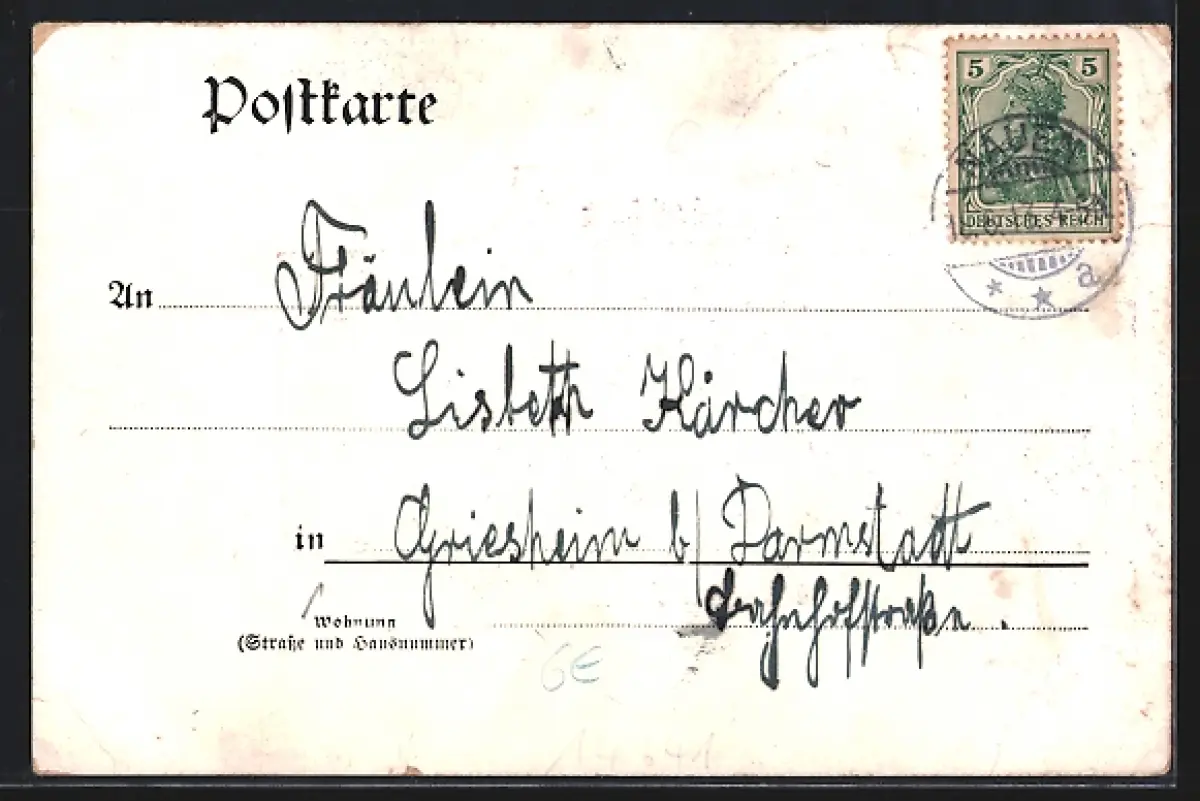 Postkarte
5 5
NAUEN
DEUTSCHES REICH
* * a
An Fräulein
Lisbeth Kärcher
in Griesheim b/ Darmstadt
Bahnhofstraße.
Wohnung
(Straße und Hausnummer)
6€